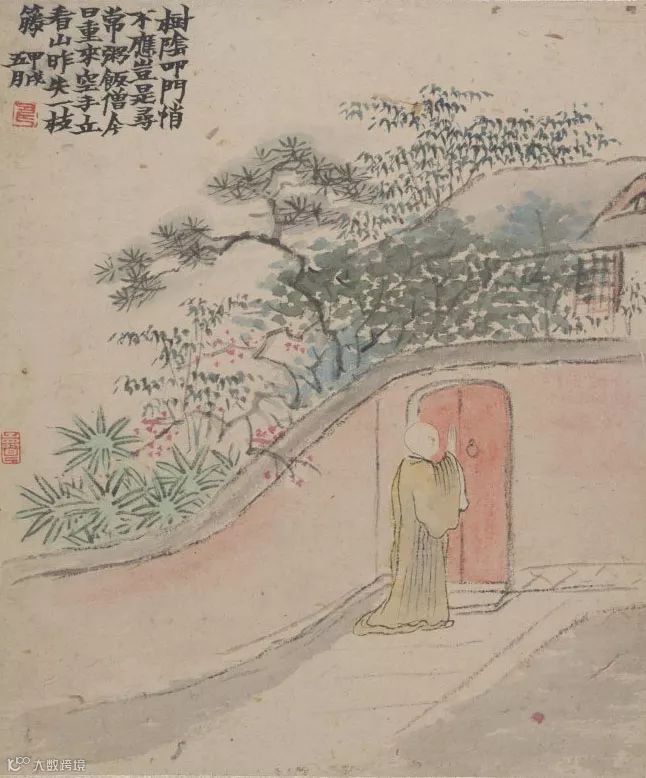 樹陰叩門悄
不應豈是尋
常粥飯僧今
日重來空手立
看山昨失一枝
藤 甲戌
五月
大数跨境